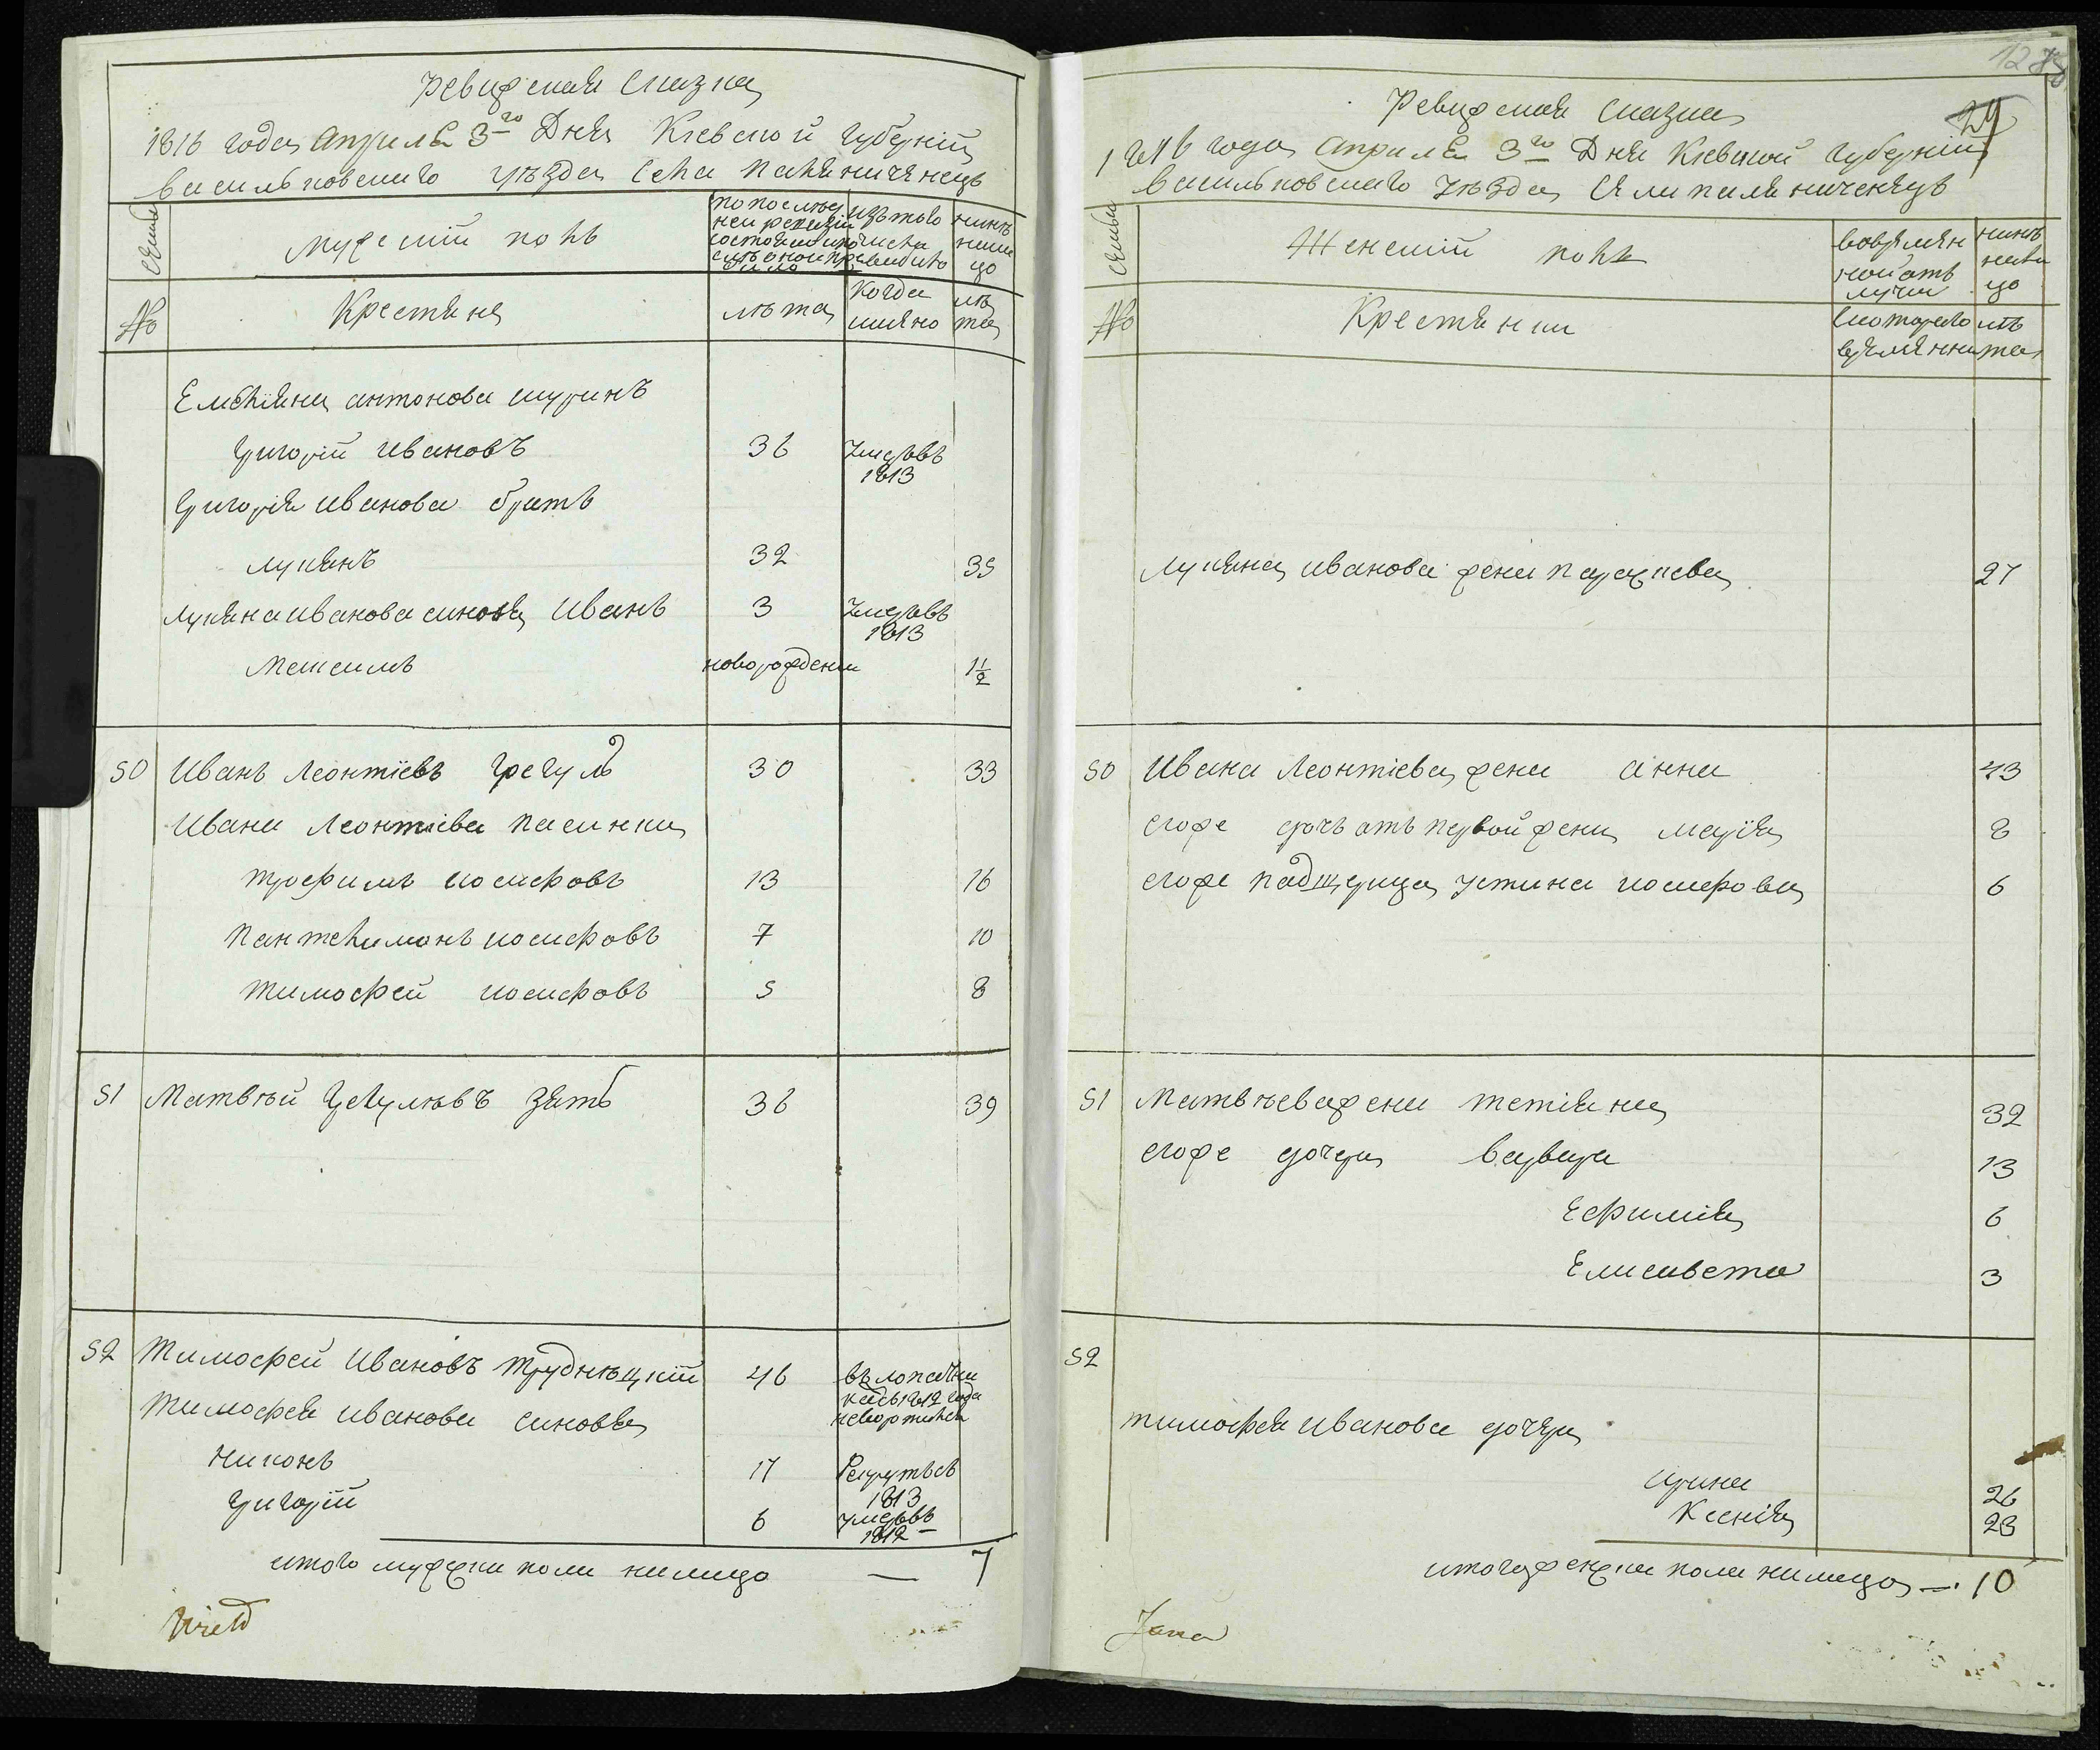 Ревизская Сказка
1816 года Апреля 3го Дня Киевской Губернiи
Васильковскаго уезда Села Паляниченецъ
Семьи
Мужескiй полъ
по послед
ней ревизiи
состояло и по
сле оной при
было
изъ того
числа
выбыло
ныне
на ли
цо
№
Крестяне
лѣта
Когда
имяно
лѣ
та
Емелiяна антонова шуринъ
Григорiй Ивановъ 36 Умеръ въ
1813
Григорiя Иванова братъ
Лукянъ 32 35
Лукяна Иванова синовя Иванъ 3 Умеръ въ
1813
Максимъ новорожденъ 1 1/2
50 Иванъ Леонтiевъ Грегуль 30 33
Ивана Леонтiева пасинки
Трофимъ иосифовъ 13 16
Пантелимонъ иосифовъ 7 10
Тимофей иосифовъ 5 8
51 Матвѣй зять 36 39
52 Тимофей Ивановъ Трудницкiй 46
1812 года
Тимофея Иванова синовя
Никонъ 17 Рекрутъ съ
1813
Григорiй 6 умеръ въ
1812
итого мужеска пола налицо — 7
Wield
128
29
Ревизская Сказка
1816 года Апреля 3го Дня Киевской Губернiи
Васильковскаго Уѣзда Села паляниченецъ
Семьи
Женскiй полъ
во врямян
ной отъ
лучки
нинѣ
нали
цо
№
Крестянки
Скоторого
врямянни
лѣ
та
Лукяна Иванова жена Параскева 27
50 Ивана Леонтiева жена Анна 43
егоже дочъ отъ первой жены Марiя 8
егоже падщерица устина иосифова 6
51 Матвѣева жена Татiяна 32
егоже дочери Варвара 13
Ефимiя 6
Елисавета 3
52
Тимофея Иванова дочери
Ирина 26
Ксенiя 23
итого женска пола налицо — 10
Jana